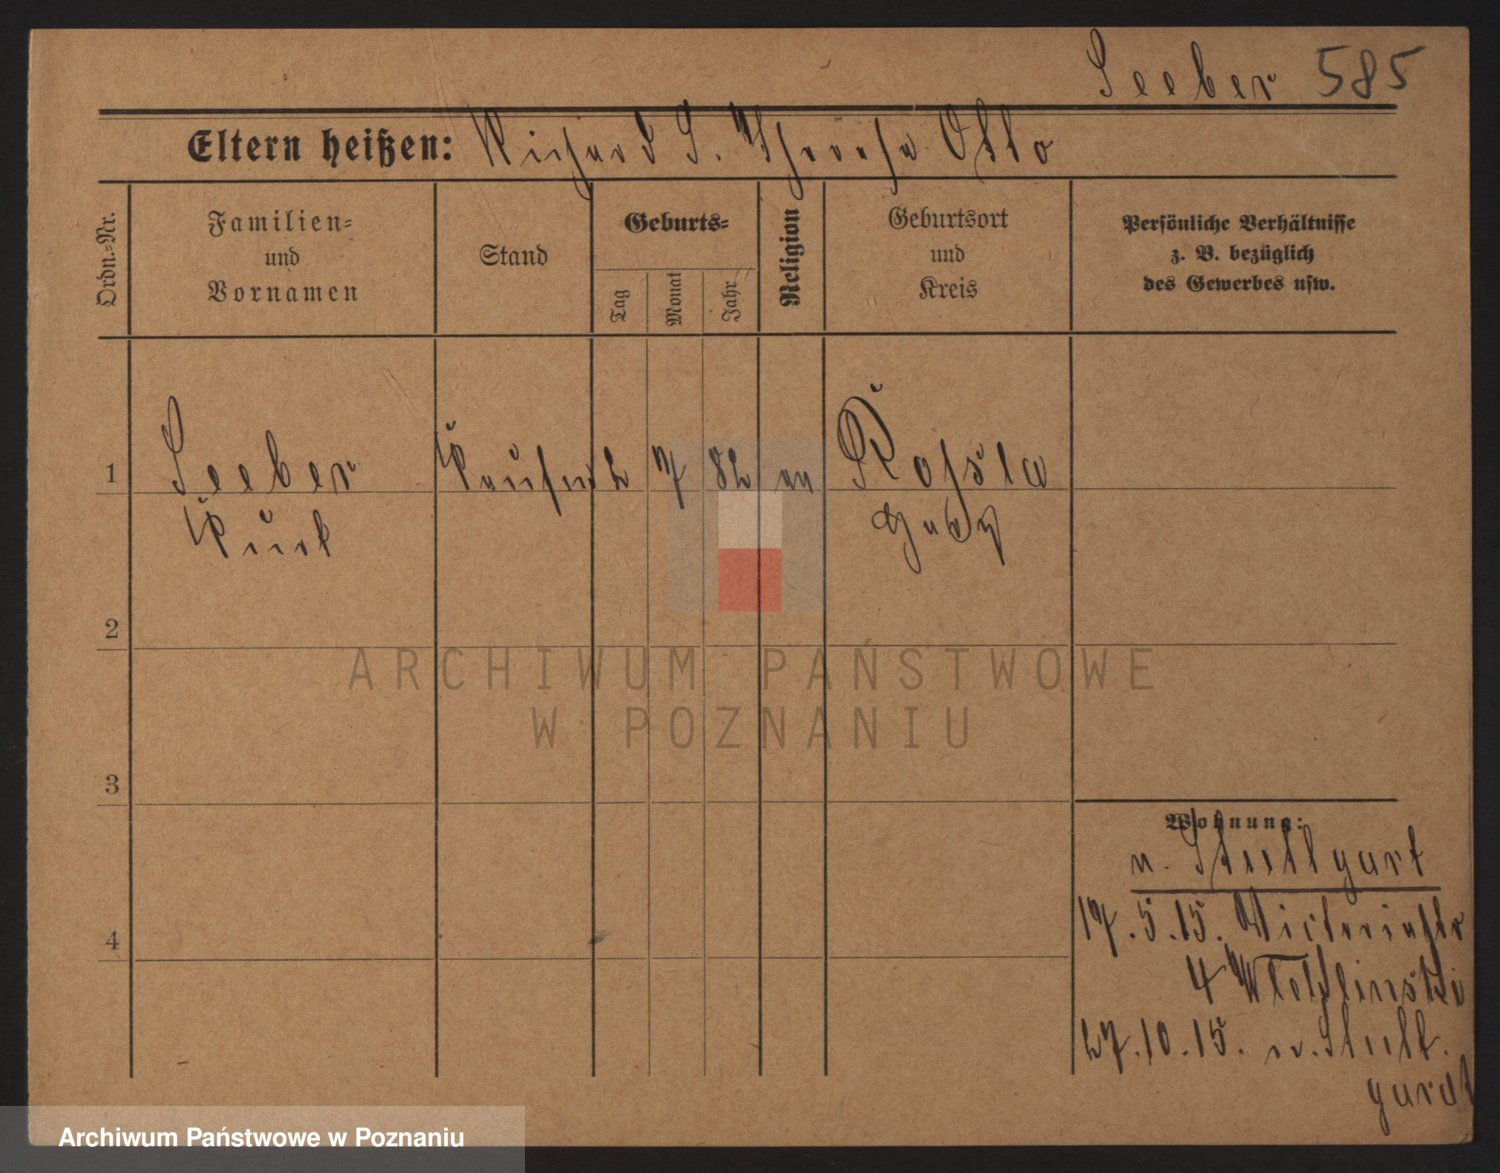 Seeber 585
Eltern heißen: Richard S. Therese Otto
Ordn.-Nr.
Familien-
und
Vornamen
Stand
Geburts-
Tag
Monat
Jahr
Religion
Geburtsort
und
Kreis
Persönliche Verhältnisse
z. B. bezüglich
des Gewerbes usw.
1 Seeber Kaufm 2 7 82 ev Rossla
Kurt
2
3
4
Wohnung:
n. Stuttgart
17.5.15. Victoriastr
4
27.10.15. n. Stutt.
gardt
ARCHIWUM PAŃSTWOWE
W POZNANIU
Archiwum Państwowe w Poznaniu